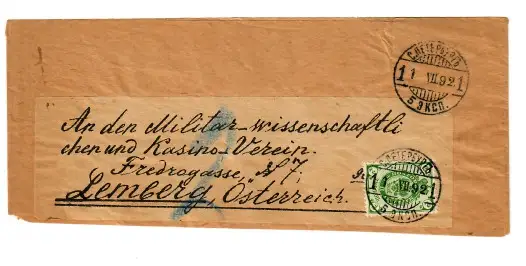 С.ПЕТЕРБУРГЪ
1 1 VII.92 1
5 ЭКСП.
An den Militar-wissenschaftli
chen und Kasino-Verein.
Fredrogasse, № 7;
Lemberg, Österreich.
С.ПЕТЕРБУРГЪ
1 1 VII 92 1
5 ЭКСП.